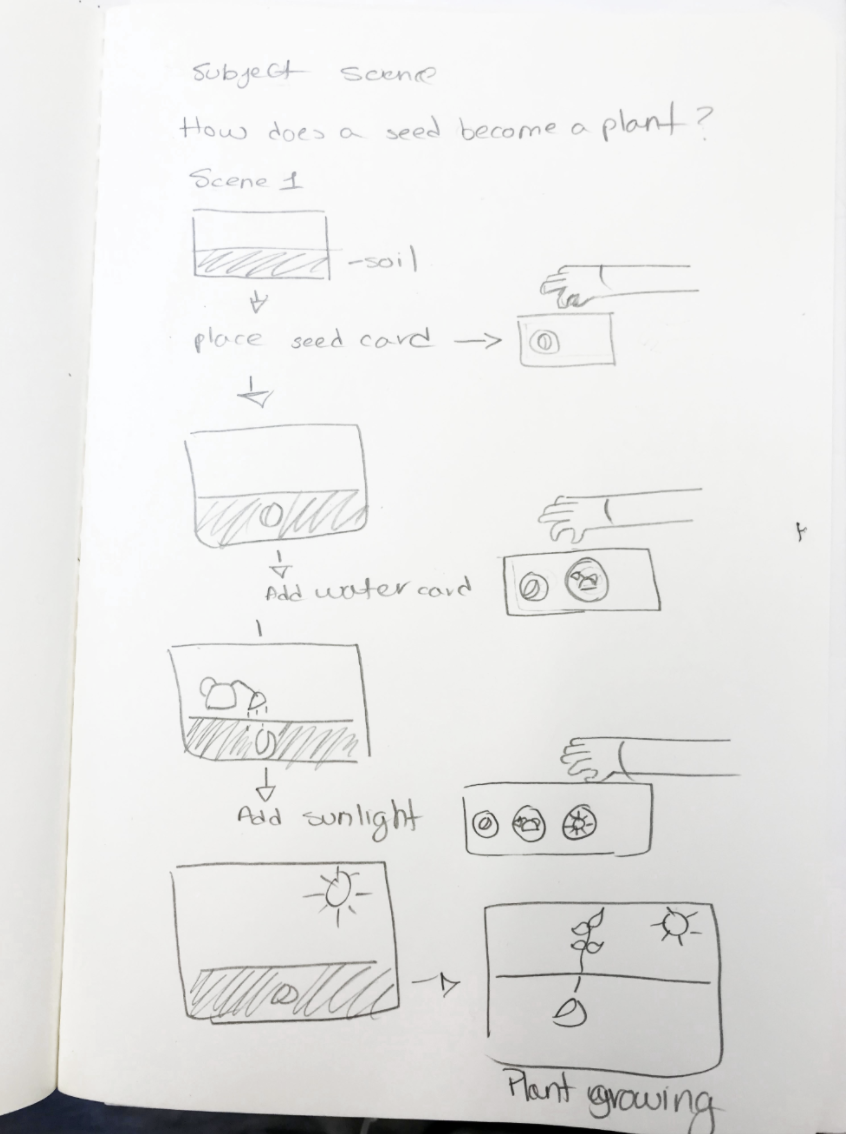 Subject scene
How does a seed become a plant?
Scene 1
-soil
place seed card
Add water card
Add sunlight
Plant growing